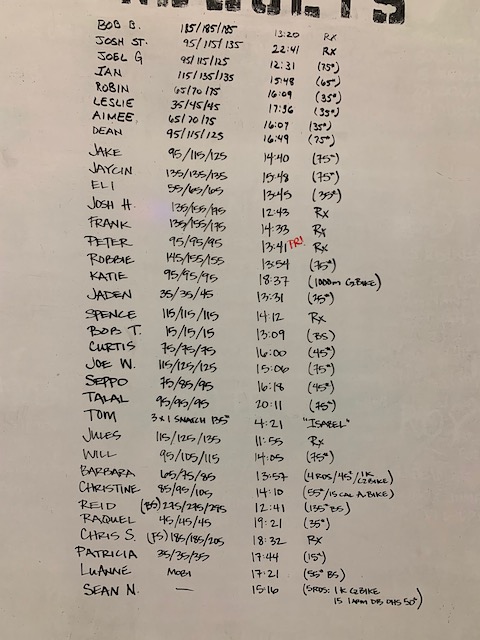 RESULTS
BOB B. 185/185/185 13:20 RX
JOSH ST. 95/115/135 22:41 RX
JOEL G 95/115/125 12:31 (75#)
IAN 115/135/135 15:48 (65#)
ROBIN 65/70/75 16:09 (35#)
LESLIE 35/45/45 17:36 (35#)
AIMEE 65/70/75 16:07 (35#)
DEAN 95/115/125 16:49 (75#)
JAKE 95/115/125 14:40 (75#)
JAYCIN 135/135/135 15:48 (75#)
ELI 55/65/65 13:45 (35#)
JOSH H. 135/155/175 12:43 RX
FRANK 135/155/175 14:33 RX
PETER 95/95/95 13:41 PR! RX
ROBBIE 145/155/155 13:54 (75#)
KATIE 95/95/95 18:37 (1000M C2BIKE)
JADEN 35/35/45 13:31 (25#)
SPENCE 115/115/115 14:12 RX
BOB T. 15/15/15 13:09 (BS)
CURTIS 75/75/75 16:00 (45#)
JOE W. 115/125/125 15:06 (75#)
SEPPO 75/85/95 16:18 (45#)
TALAL 95/95/95 20:11 (75#)
TOM 3x1 SNATCH 135# 4:21 "ISABEL"
JULES 115/125/135 11:55 RX
WILL 95/105/115 14:05 (75#)
BARBARA 65/75/85 13:57 (4RDS/45#/1K C2BIKE)
CHRISTINE 85/95/105 14:10 (55#/15 CAL A.BIKE)
REID (BS) 275/275/295 12:41 (135# BS)
RAQUEL 45/45/45 19:21 (35#)
CHRIS S. (FS) 185/185/205 18:32 RX
PATRICIA 35/35/35 17:44 (15#)
LUANNE MOBI 17:21 (55# BS)
SEAN N. — 15:16 (5RDS: 1K C2BIKE
15 1 ARM DB OHS 50#)